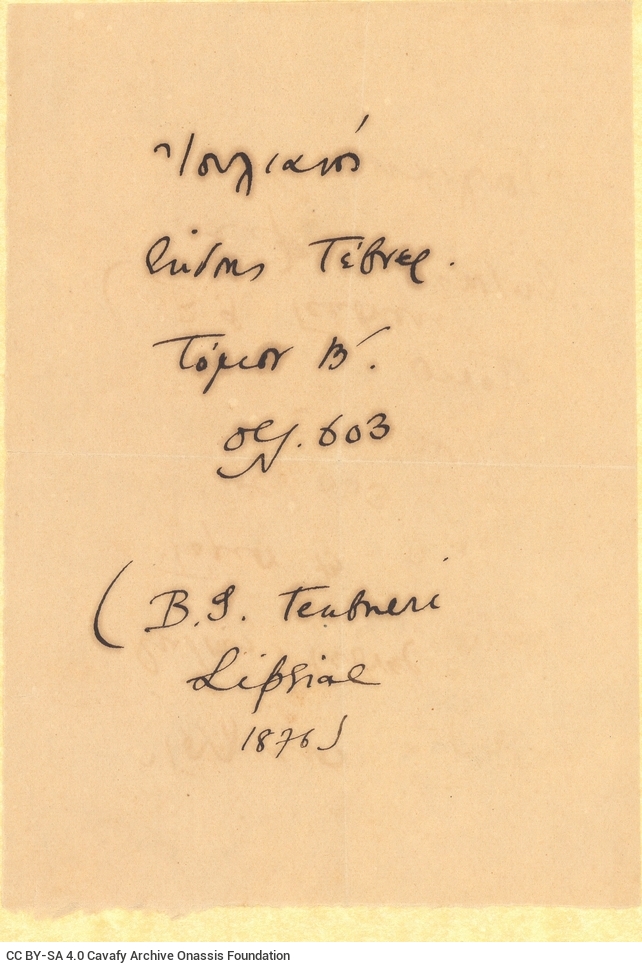 Ἰουλιανός
Ἔκδοσις Τέϋβνερ.
Τόμος Β΄.
σελ. 603
(B. G. Teubneri
Lipsiae
1876)
CC BY-SA 4.0 Cavafy Archive Onassis Foundation